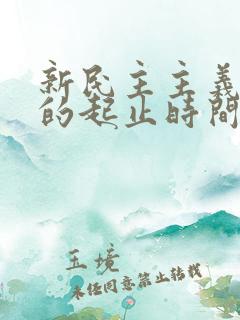 新民主主義
的起止時間
玉境
未经同意禁止转载